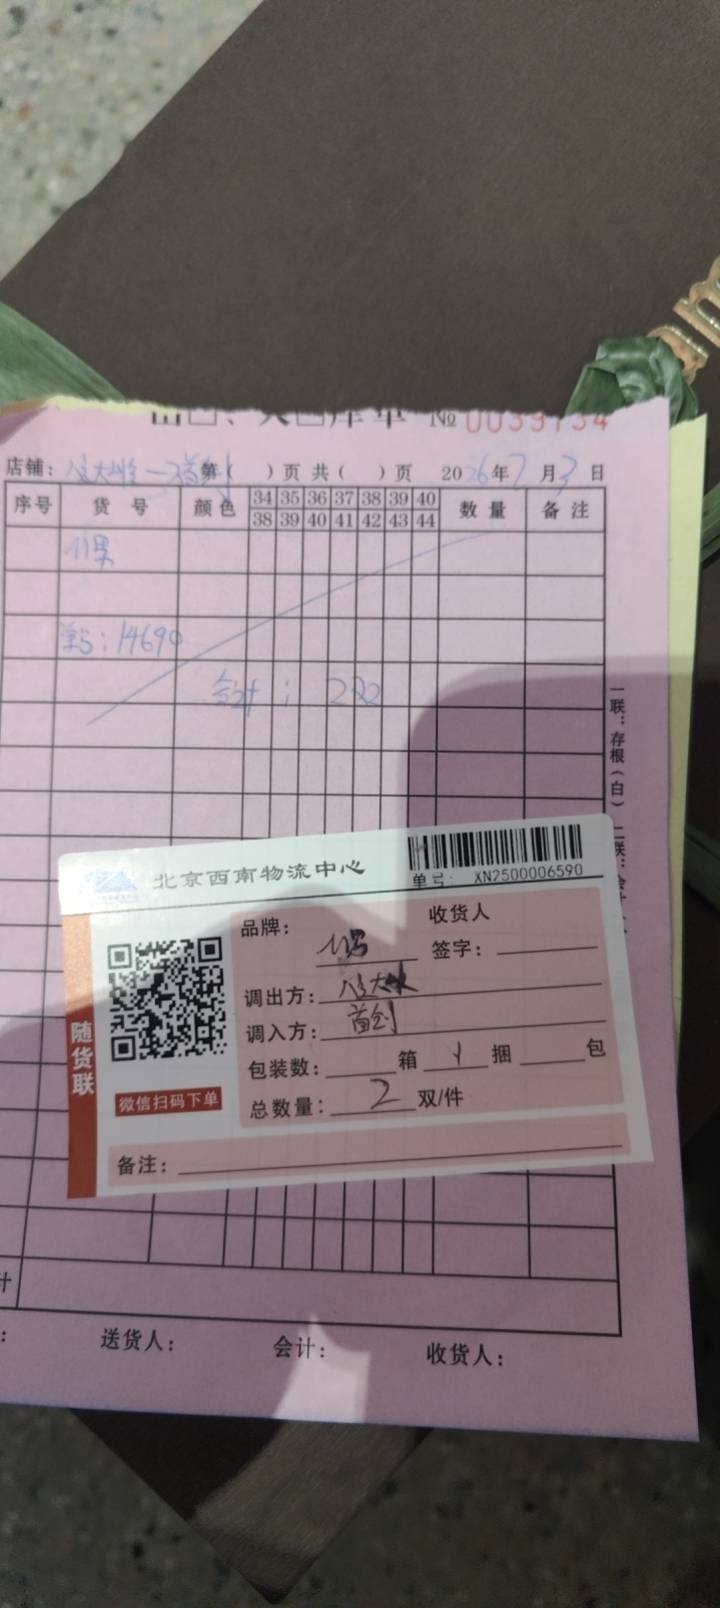 库单 № 0039734
店铺: 第( )页 共( )页 2026年7月3日
序号 货号 颜色 34 35 36 37 38 39 40 数量 备注
38 39 40 41 42 43 44
单号: 14690
合计: 222
一联:存根(白) 二联:
北京西南物流中心
单号: XN2500006590
品牌: 收货人
签字:
调出方: 八里大
调入方: 首创
包装数: 箱 1 捆 包
总数量: 2 双/件
备注:
随货联
微信扫码下单
计
送货人: 会计: 收货人: